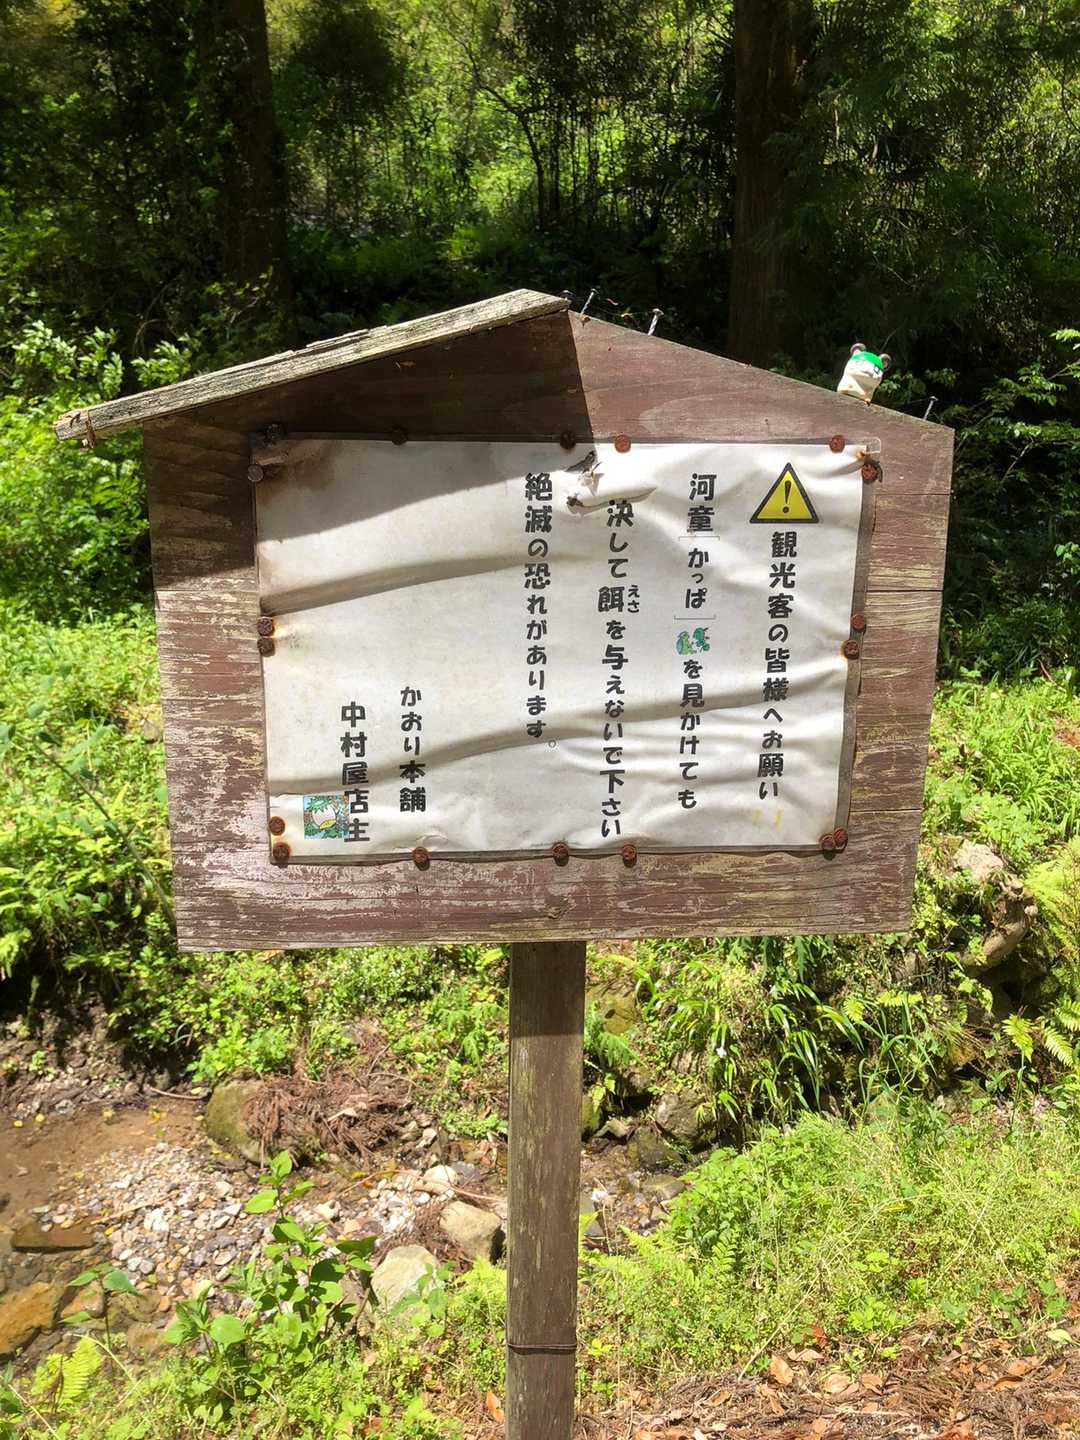 観光客の皆様へお願い
河童[かっぱ]を見かけても
決して餌を与えないで下さい
えさ
絶滅の恐れがあります。
かおり本舗
中村屋店主